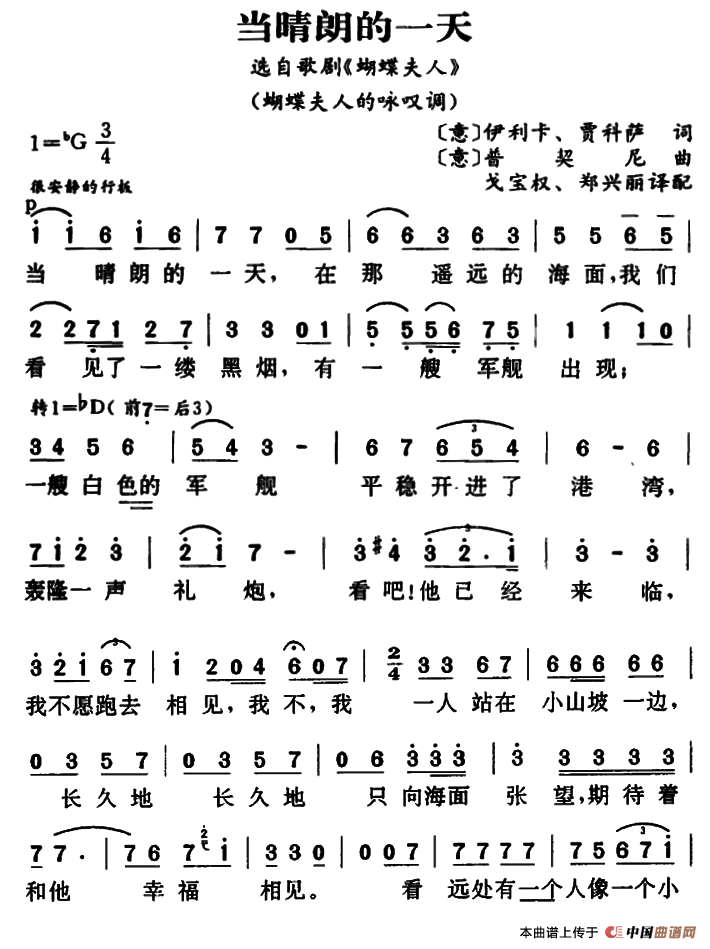 当晴朗的一天
选自歌剧《蝴蝶夫人》
(蝴蝶夫人的咏叹调)
1=♭G 3/4
〔意〕伊利卡、贾科萨 词
〔意〕普契尼 曲
戈宝权、郑兴丽译配
很安静的行板
p
i i 6 i 6 | 7 7 0 5 | 6 6 3 6 3 | 5 5 6 5 |
当 晴朗的 一天, 在那 遥远的 海面,我们
2 2 7 1 2 7 | 3 3 0 1 | 5 5 5 6 7 5 | 1 1 1 0 |
看 见了一缕黑烟, 有一 艘 军舰 出现;
转1=♭D(前7=后3)
3 4 5 6 | 5 4 3 - | 6 7 6 5 4 | 6 - 6 |
一艘白色的 军 舰 平稳开·进了 港 湾,
7 i 2 3 | 2 i 7 - | 3 #4 3 2 . i | 3 - 3 |
轰隆一声 礼 炮, 看吧!他已经 来 临,
3 2 i 6 7 | i 2 0 4 6 0 7 | 2/4 3 3 6 7 | 6 6 6 6 6 |
我不愿跑去 相见,我不,我 一人 站在 小山坡一边,
0 3 5 7 | 0 3 5 7 | 0 6 3 3 3 | 3 3 3 3 3 |
长久地 长久地 只向海面 张望,期待着
7 7 . | 7 6 7 2 i | 3 3 0 | 0 0 7 | 7 7 7 7 | 7 5 6 7 i |
和他 幸福 相见。 看 远处有一个人像一个小
本曲谱上传于 中国曲谱网